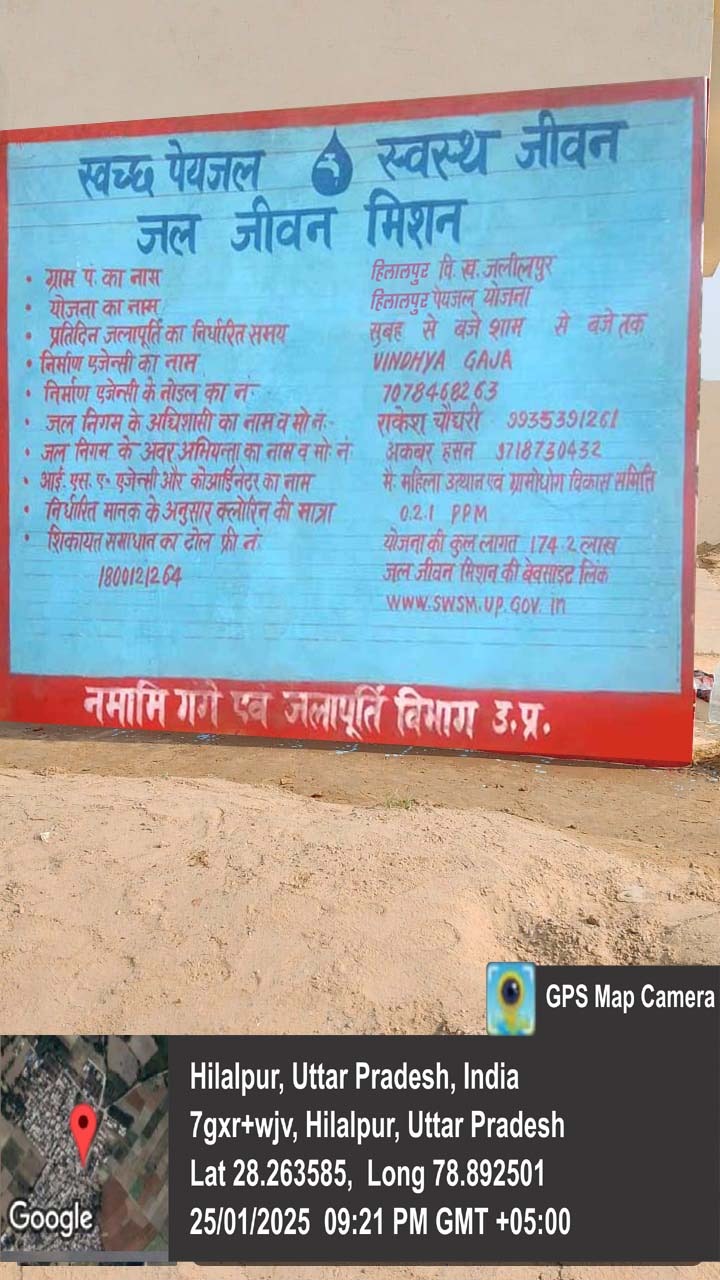 स्वच्छ पेयजल स्वस्थ जीवन
जल जीवन मिशन
• ग्राम पं. का नाम हिलालपुर वि. ख. जलीलपुर
• योजना का नाम हिलालपुर पेयजल योजना
• प्रतिदिन जलापूर्ति का निर्धारित समय सुबह से बजे शाम से बजे तक
• निर्माण एजेन्सी का नाम VINDHYA GAJA
• निर्माण एजेन्सी के नोडल का नं. 7078468263
• जल निगम के अधिशासी का नाम व मो नं. राकेश चौधरी 9935391261
• जल निगम के अवर अभियन्ता का नाम व मो. नं. अकबर हसन 9718730432
• आई. एस. ए. एजेन्सी और कोआर्डिनेटर का नाम मै. महिला उत्थान एवं ग्रामोधोग विकास समिति
• निर्धारित मानक के अनुसार क्लोरिन की मात्रा 0.21 PPM
• शिकायत समाधान का टोल फ्री नं. योजना की कुल लागत 174.2 लाख
1800121264 जल जीवन मिशन की बेवसाइट लिंक
WWW.SWSM.UP.GOV.in
नमामि गंगे एवं जलापूर्ति विभाग उ.प्र.
GPS Map Camera
Hilalpur, Uttar Pradesh, India
7gxr+wjv, Hilalpur, Uttar Pradesh
Lat 28.263585, Long 78.892501
25/01/2025 09:21 PM GMT +05:00
Google